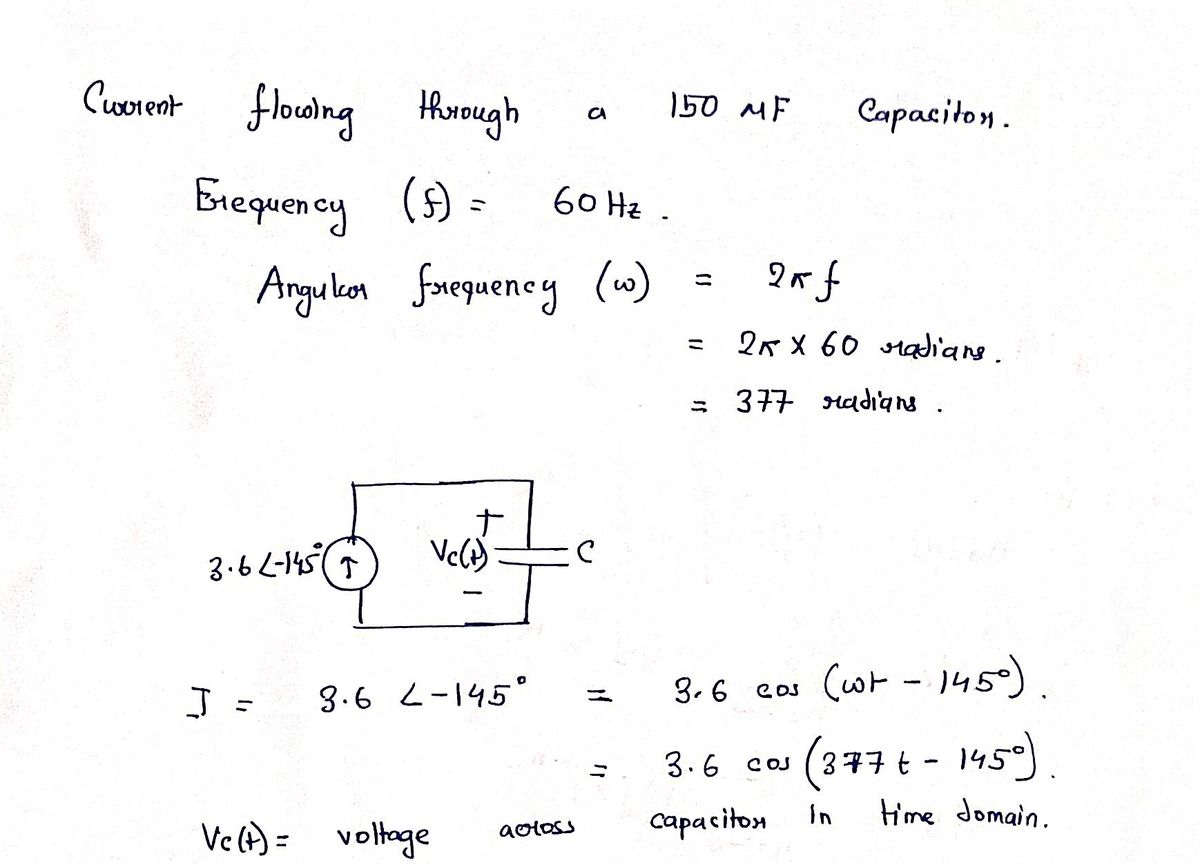 Current flowing through a 150 μF Capacitor.
Frequency (f) = 60 Hz.
Angular frequency (ω) = 2π f
= 2π × 60 radians.
= 377 radians.
3.6 ∠-145°
↑
+
Vc(t)
-
C
I = 3.6 ∠-145° = 3.6 cos (ωt - 145°).
= 3.6 cos (377 t - 145°).
Vc(t) = voltage across capacitor in time domain.